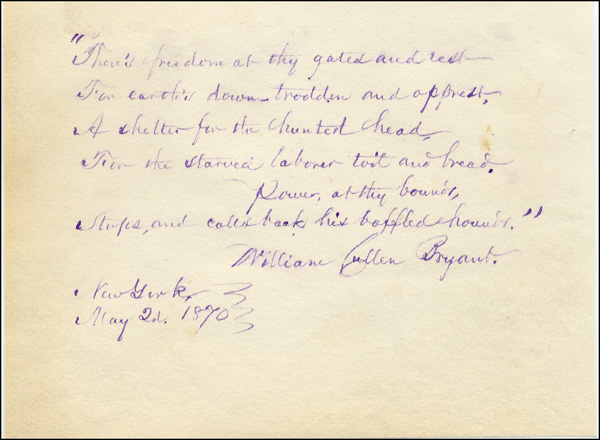 "There's freedom at thy gates and rest
For earth's down-trodden and opprest,
A shelter for the hunted head,
For the starved laborer toil and bread.
Power, at thy bounds,
Stops, and calls back his baffled hounds."
William Cullen Bryant.
New York,
May 2d. 1870